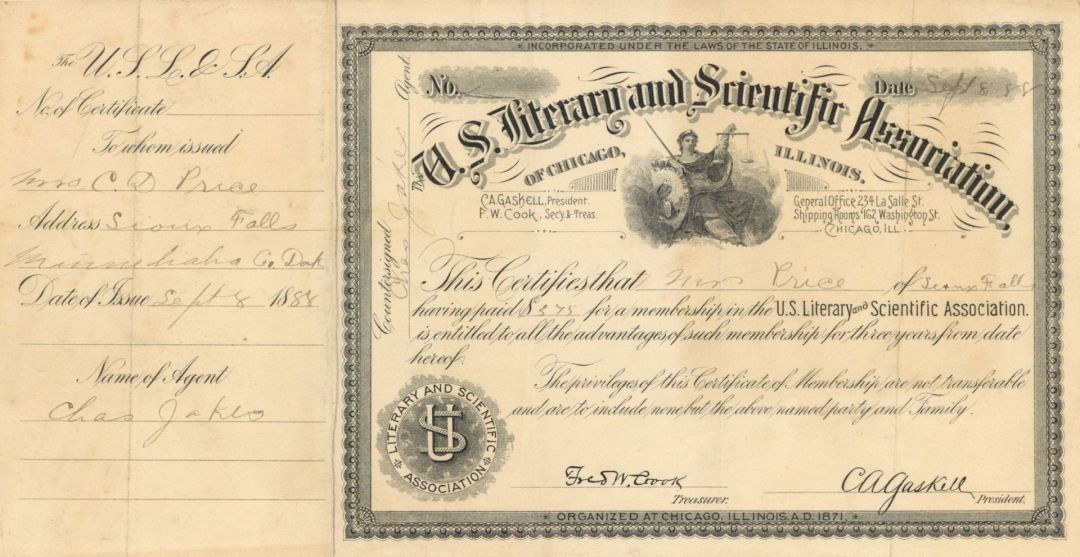 The U.S.L. & S.A.
No. of Certificate
To whom issued
Mrs C. D Price
Address Sioux Falls
Minnehaha Co, Dak
Date of Issue Sept 8 1888
Name of Agent
Chas Jakes
INCORPORATED UNDER THE LAWS OF THE STATE OF ILLINOIS.
No.
Date Sept 8 88
The U.S. Literary and Scientific Association,
OF CHICAGO, ILLINOIS.
C.A. GASKELL, President.
F. W. COOK, Secy. & Treas.
General Office 234 La Salle St.
Shipping Rooms 162 Washington St.
CHICAGO, ILL.
Countersigned Chas Jakes Agent.
This Certifies that Mrs Price of Sioux Falls
having paid $3.75 for a membership in the U.S. Literary and Scientific Association.
is entitled to all the advantages of such membership for three years from date
hereof.
The privileges of this Certificate of Membership are not transferable
and are to include none but the above named party and Family.
LITERARY AND SCIENTIFIC ASSOCIATION
US
Fred W. Cook
Treasurer.
C A Gaskell
President.
ORGANIZED AT CHICAGO, ILLINOIS, A.D. 1871.